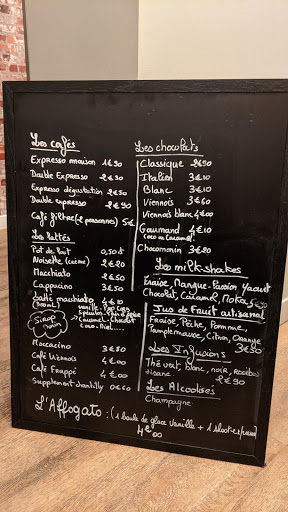 Les cafés
Expresso maison 1€50
Double Expresso 2€50
Expresso dégustation 2€50
Double expresso 2€90
Café filtre (2 personnes) 5€
Les lattés
Pot de lait 0,50ct
Noisette (crème) 2€20
Macchiato 2€50
Cappucino 3€50
Latté macchiato 4€10
Sirop
Vanille - Pop Corn
Spéculos - Pain d'épice
Caramel - Chocolat
Coco - Miel....
Moccacino 3€80
Café Viennois 4€00
Café Frappé 4€00
Supplément chantilly 0€60
Les chocolats
Classique 2€90
Italien 3€10
Blanc 3€10
Viennois 3€60
Viennois blanc 4€00
Gourmand 4€10
Coco ou Caramel
Chocomonin 3€20
Les milk-shakes
Fraise, Mangue-Passion, Yaourt
Chocolat, Caramel, Moka, 5€50
Jus de Fruit artisanal
Fraise, Pêche, Pomme,
Pamplemousse, Citron, Orange
3€50
Les Infusions
Thé vert, blanc, noir, Rooibos
tisane. 2€90
Les Alcoolisés
Champagne
L'Affogato : (1 boule de glace vanille + 1 shot expresso)
4€00